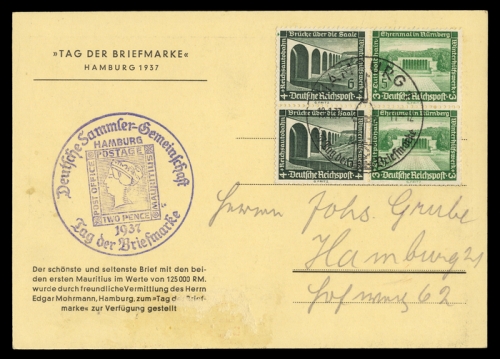 »TAG DER BRIEFMARKE«
HAMBURG 1937
Brücke über die Saale
Reichsautobahn
Winterhilfswerk
4+3 Deutsche Reichspost
Ehrenmal in Nürnberg
Winterhilfswerk
3+2 Deutsche Reichspost
Brücke über die Saale
Reichsautobahn
4+3 Deutsche Reichspost
Ehrenmal in Nürnberg
Winterhilfswerk
Deutsche Reichspost
HAMBURG
Briefmarke
Deutsche Sammler-Gemeinschaft
HAMBURG
POSTAGE
POST OFFICE
MAURITIUS
TWO PENCE
1937
Tag der Briefmarke
Der schönste und seltenste Brief mit den bei-
den ersten Mauritius im Werte von 125 000 RM.
wurde durch freundliche Vermittlung des Herrn
Edgar Mohrmann, Hamburg, zum »Tag der Brief-
marke« zur Verfügung gestellt
Herrn Johs. Grube
Hamburg 21
Hofweg 62